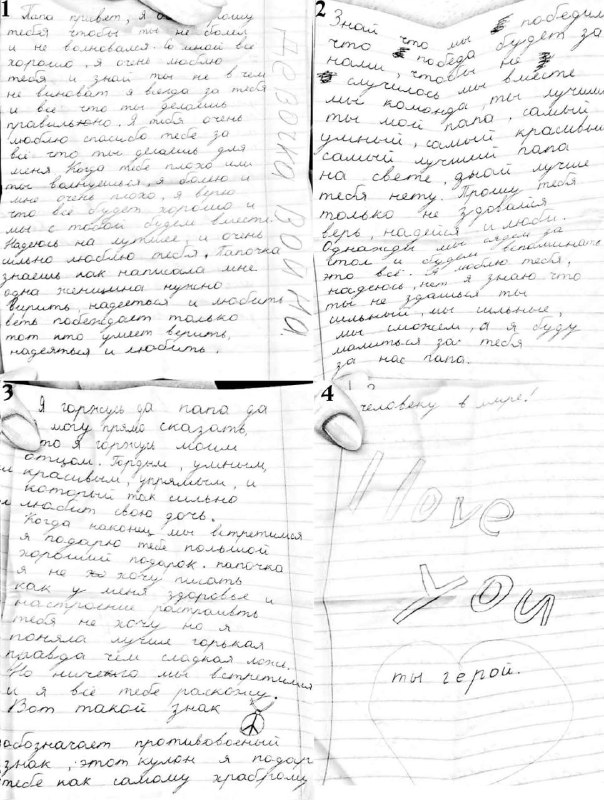 1
Папа привет, я прошу
тебя чтобы ты не болел
и не волновался. Со мной всё
хорошо, я очень люблю
тебя и знай ты не в чем
не виноват я всегда за тебя
и всё что ты делаешь
правильно. Я тебя очень
люблю спасибо тебе за
всё что ты делаешь для
меня Когда тебе плохо или
ты волнуешься, я болею и
мне очень плохо, я верю
что всё будет хорошо и
мы с тобой будем вместе
Надеюсь на лутшее, и очень
сильно люблю тебя. Папочка
знаешь как написала мне
одна женщина нужно
верить, надееться и любить
веть побеждает только
тот кто умеет верить,
надеяться и любить.
девочка война
2
Знай что мы победим
что победа будет за
нами, чтобы не
случилось мы вместе
мы команда ты лучший
ты мой папа, самый
умный, самый красивый
самый лучший папа
на свете, знай лучше
тебя нету. Прошу тебя
только не здовайся
верь, надейся и люби.
Однажды мы сядем за
стол и будем вспоминать
это всё. Я люблю тебя,
надеюсь, нет я знаю что
ты не здашься ты
сильный, мы сильные,
мы сможем, а я буду
молиться за тебя
за нас папа.
3
Я горжусь да папа да
могу прямо сказать,
что я горжусь моим
отцом. Гордым, умным,
красивым, упрямым, и
который так сильно
любит свою дочь.
Когда наконец мы встретимся
я подарю тебе большой
хороший подарок. папочка
я не хочу писать
как у меня здоровье и
настроение растраивть
тебя не хочу но я
поняла лучше горькая
правда чем сладкая ложь.
Но ничего мы встретимся
и я всё тебе раскажу.
Вот такой знак
обозначает противовоеный
знак, этот кулон я подар
тебе как самому храброму
4
человеку в мире!
I love
you
ты герой.